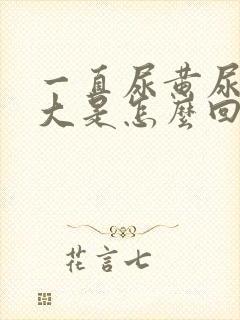 一直尿黄尿
大是怎麼回
花言七